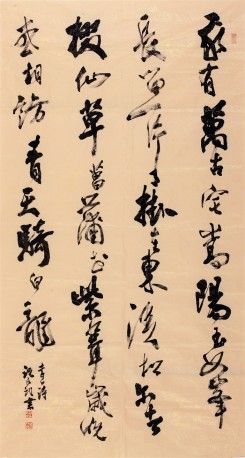 我有萬古宅嵩陽玉女峰
長留一片月掛在東溪松尔去
掇仙草菖蒲花紫茸歲晚
相訪青天騎白龍
李白詩
書